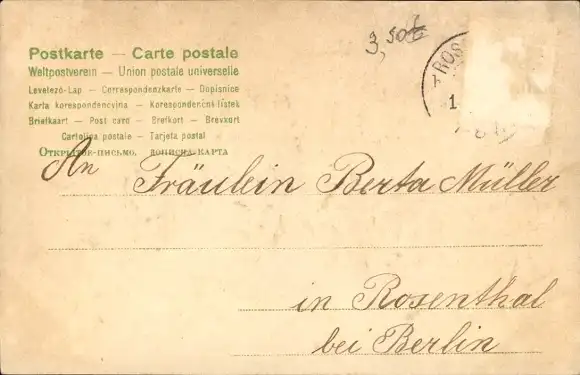 3,50
Postkarte — Carte postale
Weltpostverein — Union postale universelle
Levelező-Lap — Correspondenzkarte — Dopisnice
Karta korespondencyjna — Korespondenční lístek
Briefkaart — Post card — Brefkort — Brevkort
Cartolina postale — Tarjeta postal
Открытое-письмо, дописна-карта
An Fräulein Berta Müller
in Rosenthal
bei Berlin